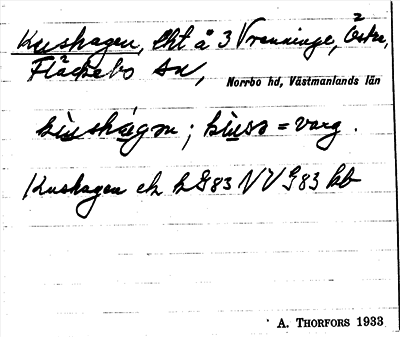 Kushagen, lht å 3 Vrenninge, Öster,
Fläckebo sn,
Norrbo hd, Västmanlands län
kushagen; = varg.
Kushagen ek LSS83 NV S83 kb
A. THORFORS 1933